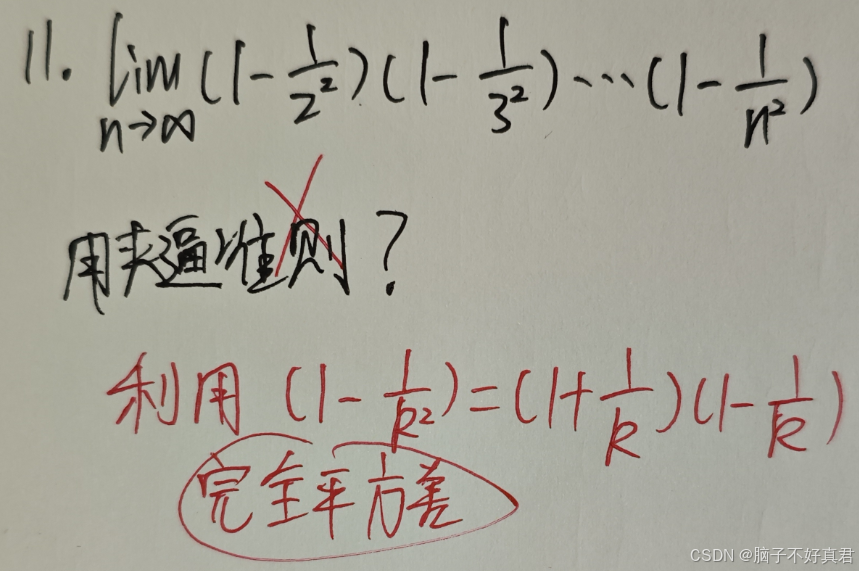 11. lim n→∞ (1-1/2²)(1-1/3²)⋯(1-1/n²)
用夹逼准则?
利用 (1-1/k²)=(1+1/k)(1-1/k)
完全平方差
CSDN @脑子不好真君